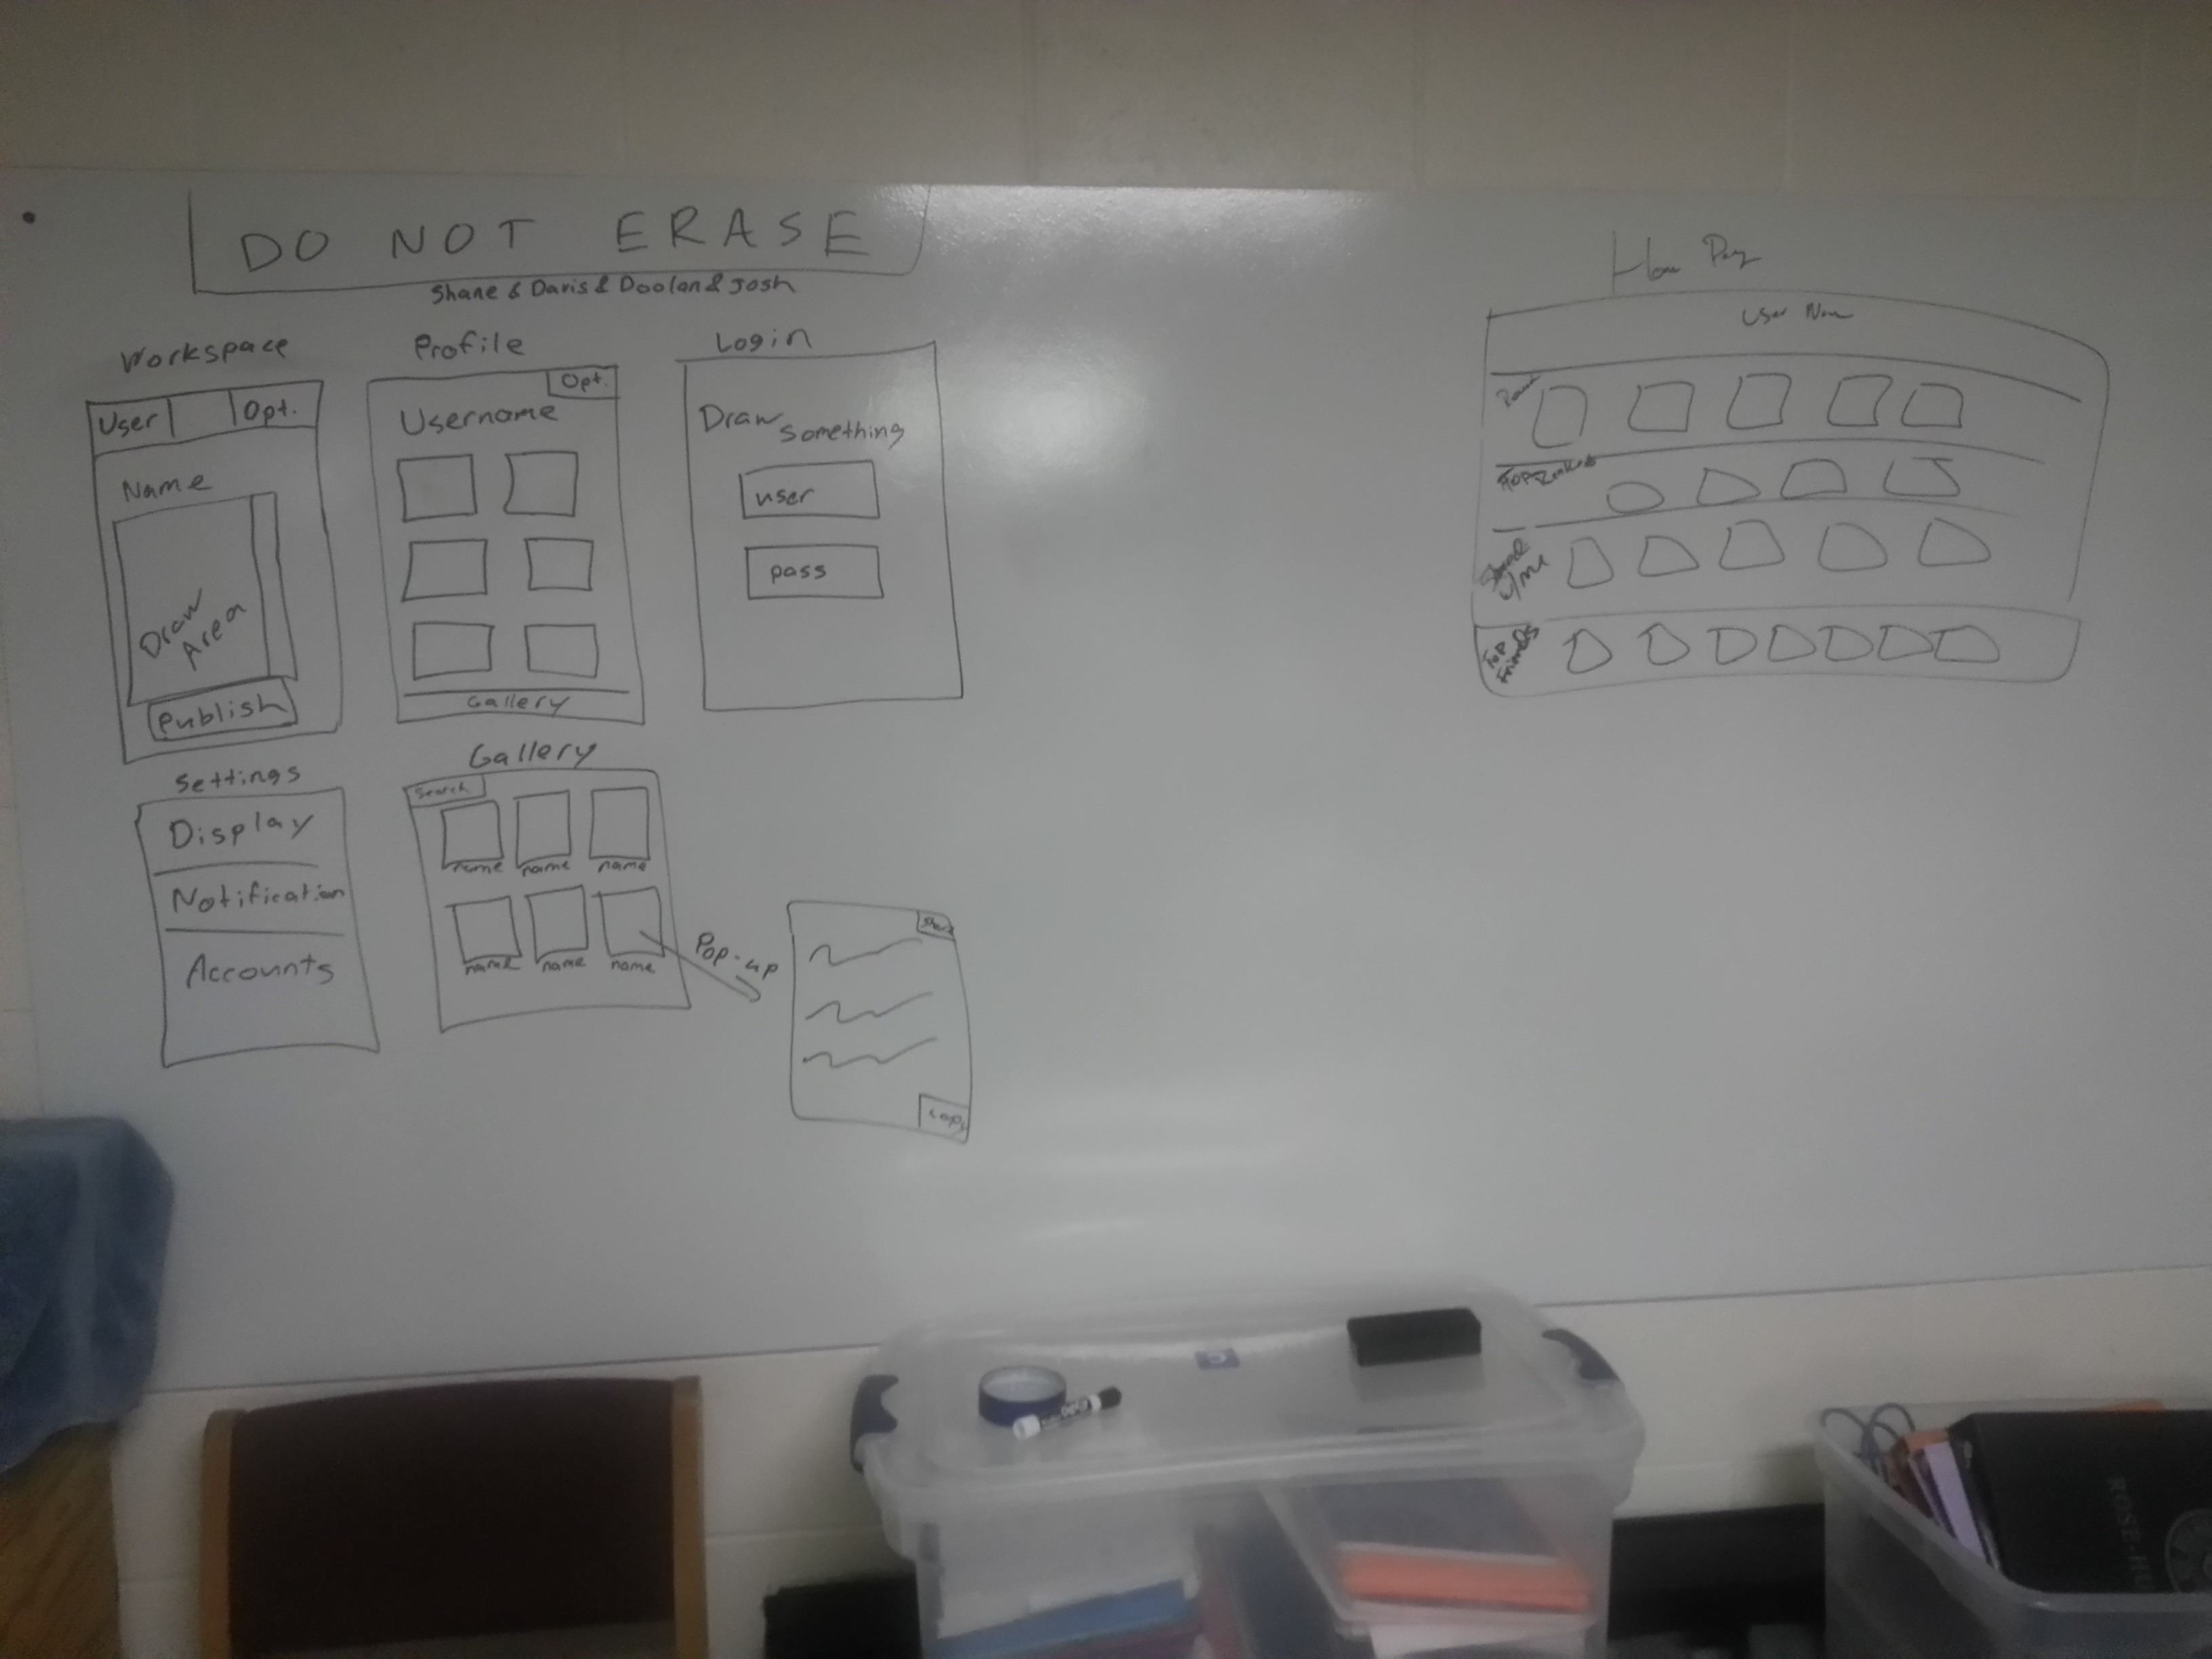 DO NOT ERASE
Shane & Davis & Doolan & Josh
Workspace
User
Opt.
Name
Draw
Area
Publish
Profile
Opt.
Username
Gallery
Login
Draw
Something
user
pass
Settings
Display
Notification
Accounts
Gallery
Search
name name name
name name name
Pop-up
Share
Copy
User
Top
Shared
w/me
Top
Friends
EXPO
ROSE-HU